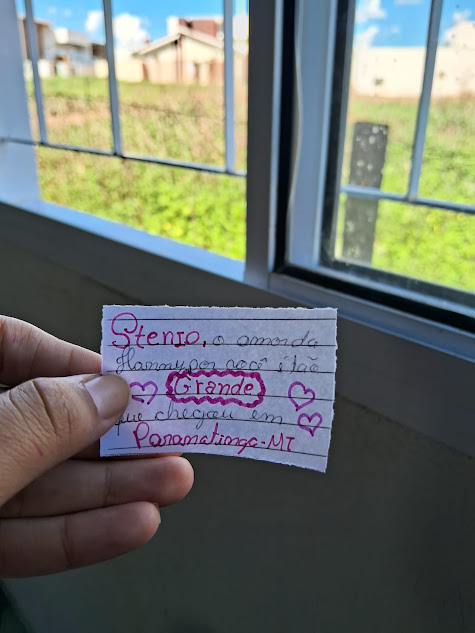 Stenio, o amor da
Hanny por você é tão
Grande
que chegou em
Paranatinga-MT